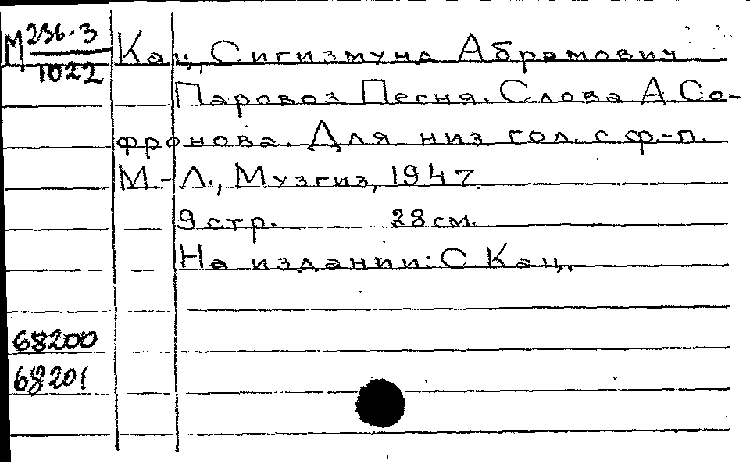 М 236-3
1022
Кац, Сигизмунд Абрамович
Паровоз Песня. Слова А. Со-
фронова. Для низ гол. с ф.-п.
М.-Л., Музгиз, 1947.
9 стр. 28 см.
На издании: С Кац.
68200
68201